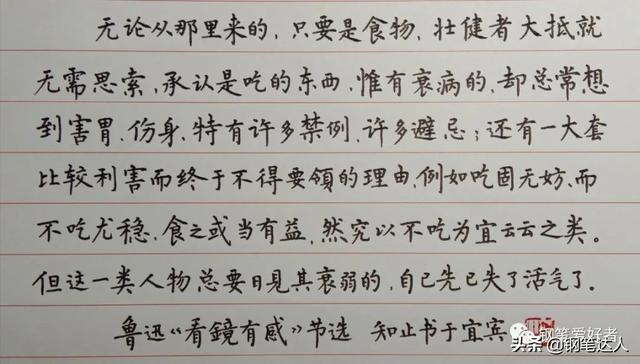 无论从那里来的，只要是食物，壮健者大抵就
无需思索，承认是吃的东西，惟有衰病的，却总常想
到害胃、伤身，特有许多禁例，许多避忌；还有一大套
比较利害而终于不得要領的理由，例如吃固无妨，而
不吃尤稳，食之或当有益，然究以不吃为宜云云之类。
但这一类人物总要日見其衰弱的，自己先已失了活气了。
鲁迅“看鏡有感”节选 知止书于宜宾
钢笔爱好者
头条 @钢笔达人